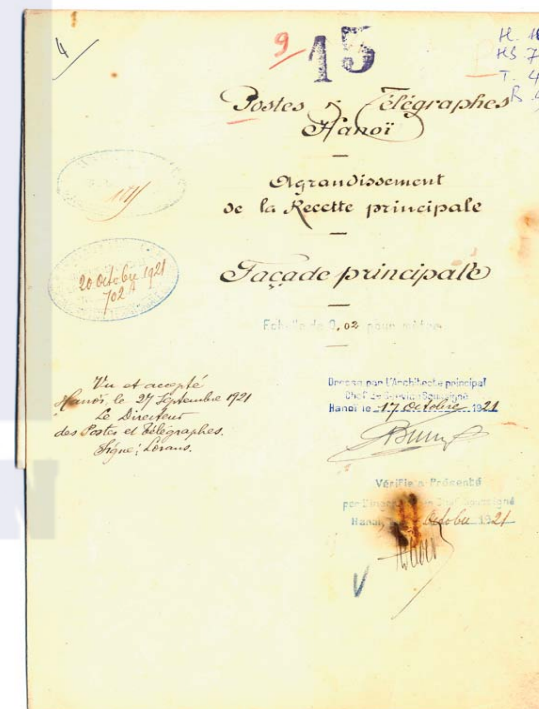 4
9
15
H.
HS 7
T. 4
R
Postes & Télégraphes
Hanoï
Agrandissement
de la Recette principale
Façade principale
Echelle de 0,02 pour mètre
20 Octobre 1921
702
Vu et accepté
Hanoï, le 27 Septembre 1921
Le Directeur
des Postes et Télégraphes.
Signé:
Dressé par l'Architecte principal
Chef de Service Soussigné
Hanoï le 17 Octobre 1921
Vérifié & Présenté
par Chef Soussigné
Hanoï, Octobre 1921